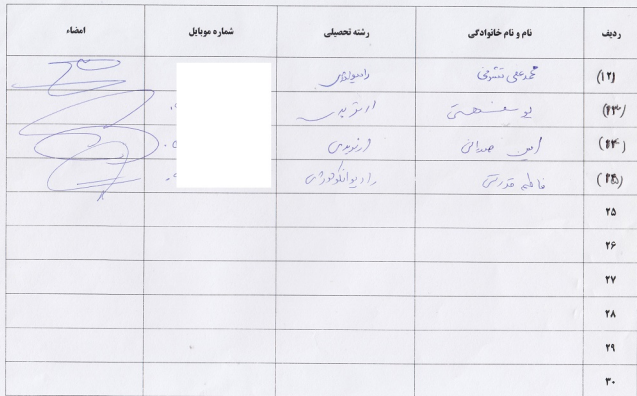 ردیف نام و نام خانوادگی رشته تحصیلی شماره موبایل امضاء
(۱۲) محمدعلی رادیولوژی
یوسف ارتوپدی
امیر ارتوپدی
فاطمه قدرتی رادیوانکولوژی
۲۵
۲۶
۲۷
۲۸
۲۹
۳۰